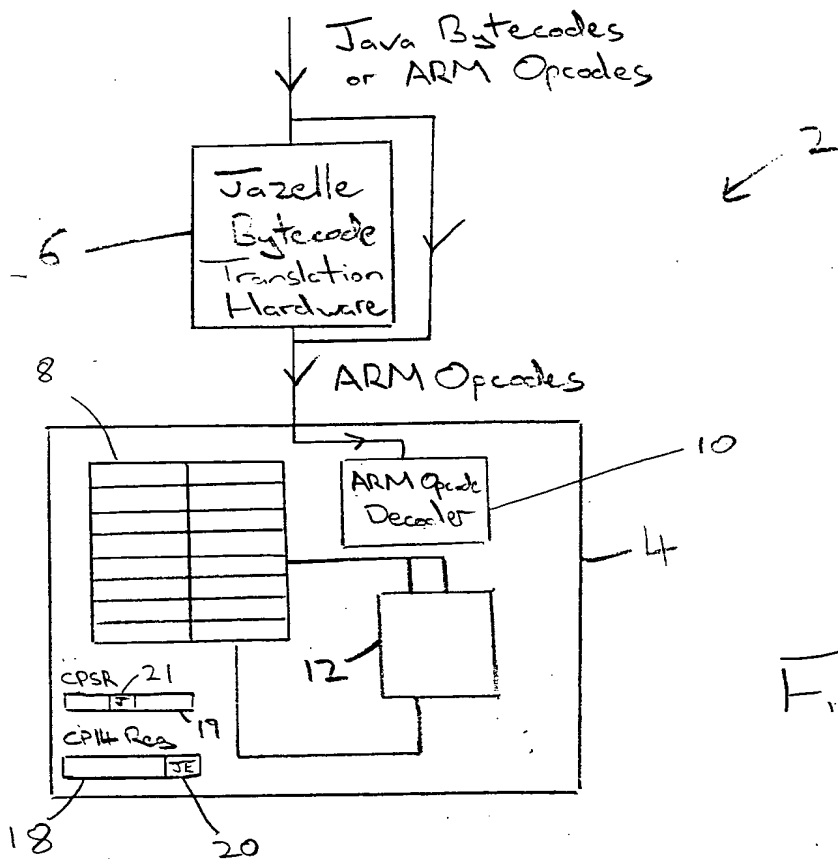 Java Bytecodes
or ARM Opcodes
2
Jazelle
Bytecode
Translation
Hardware
6
8
ARM Opcodes
ARM Opcode
Decoder
10
4
12
CPSR
21
J
19
CP14 Reg
JE
18
20